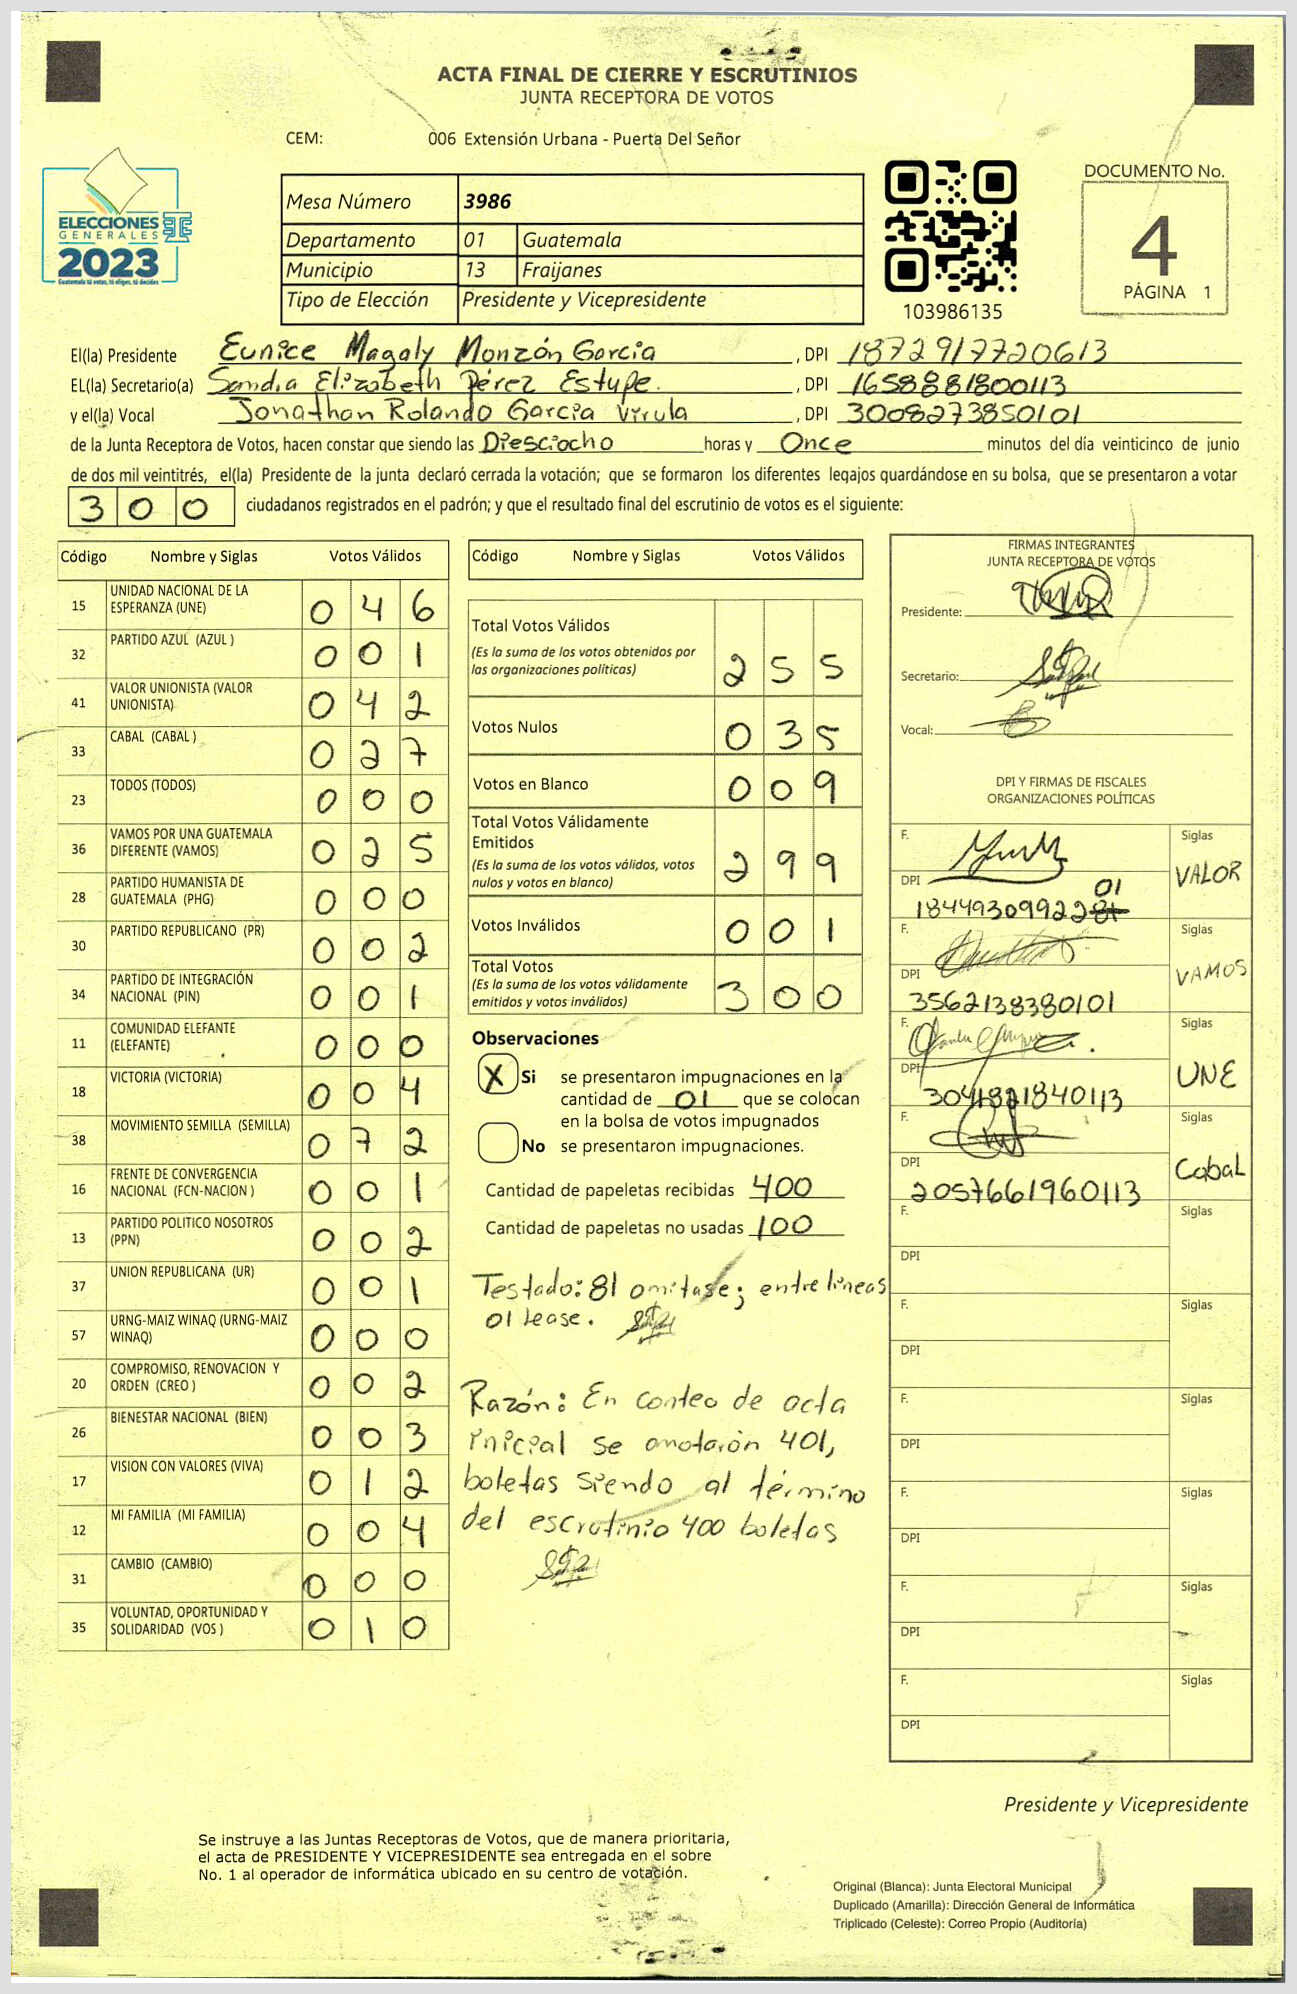 ACTA FINAL DE CIERRE Y ESCRUTINIOS
JUNTA RECEPTORA DE VOTOS
CEM: 006 Extensión Urbana - Puerta Del Señor
ELECCIONES
GENERALES
2023
Guatemala tú votas, tú eliges, tú decides
Mesa Número 3986
Departamento 01 Guatemala
Municipio 13 Fraijanes
Tipo de Elección Presidente y Vicepresidente
103986135
DOCUMENTO No.
4
PÁGINA 1
El(la) Presidente Eunice Magaly Monzón Garcia, DPI 1872917720613
EL(la) Secretario(a) Sandra Elizabeth Pérez Estupe. , DPI 1658881800113
y el(la) Vocal Jonathan Rolando Garcia Virula, DPI 3008273850101
de la Junta Receptora de Votos, hacen constar que siendo las Diesciocho horas y Once minutos del día veinticinco de junio
de dos mil veintitrés, el(la) Presidente de la junta declaró cerrada la votación; que se formaron los diferentes legajos quardándose en su bolsa, que se presentaron a votar
300 ciudadanos registrados en el padrón; y que el resultado final del escrutinio de votos es el siguiente:
Código Nombre y Siglas Votos Válidos
15 UNIDAD NACIONAL DE LA ESPERANZA (UNE) 046
32 PARTIDO AZUL (AZUL ) 001
41 VALOR UNIONISTA (VALOR UNIONISTA) 042
33 CABAL (CABAL ) 027
23 TODOS (TODOS) 000
36 VAMOS POR UNA GUATEMALA DIFERENTE (VAMOS) 025
28 PARTIDO HUMANISTA DE GUATEMALA (PHG) 000
30 PARTIDO REPUBLICANO (PR) 002
34 PARTIDO DE INTEGRACIÓN NACIONAL (PIN) 001
11 COMUNIDAD ELEFANTE (ELEFANTE) 000
18 VICTORIA (VICTORIA) 004
38 MOVIMIENTO SEMILLA (SEMILLA) 072
16 FRENTE DE CONVERGENCIA NACIONAL (FCN-NACION ) 001
13 PARTIDO POLITICO NOSOTROS (PPN) 002
37 UNION REPUBLICANA (UR) 001
57 URNG-MAIZ WINAQ (URNG-MAIZ WINAQ) 000
20 COMPROMISO, RENOVACION Y ORDEN (CREO ) 002
26 BIENESTAR NACIONAL (BIEN) 003
17 VISION CON VALORES (VIVA) 012
12 MI FAMILIA (MI FAMILIA) 004
31 CAMBIO (CAMBIO) 000
35 VOLUNTAD, OPORTUNIDAD Y SOLIDARIDAD (VOS ) 010
Código Nombre y Siglas Votos Válidos
Total Votos Válidos
(Es la suma de los votos obtenidos por
las organizaciones políticas) 255
Votos Nulos 035
Votos en Blanco 009
Total Votos Válidamente
Emitidos
(Es la suma de los votos válidos, votos
nulos y votos en blanco) 299
Votos Inválidos 001
Total Votos
(Es la suma de los votos válidamente
emitidos y votos inválidos) 300
Observaciones
X Si se presentaron impugnaciones en la
cantidad de 01 que se colocan
en la bolsa de votos impugnados
No se presentaron impugnaciones.
Cantidad de papeletas recibidas 400
Cantidad de papeletas no usadas 100
Testado: 81 omitase; entre lineas
01 Lease.
Razón: En conteo de acta
inicial se anotarón 401,
boletas siendo al término
del escrutinio 400 boletas
FIRMAS INTEGRANTES
JUNTA RECEPTORA DE VOTOS
Presidente:
Secretario:
Vocal:
DPI Y FIRMAS DE FISCALES
ORGANIZACIONES POLÍTICAS
F. Siglas
VALOR
DPI 01
1844930992281
F. Siglas
VAMOS
DPI
3562138380101
F. Siglas
UNE
DPI
3041821840113
F. Siglas
Cabal
DPI
2057661960113
F. Siglas
DPI
F. Siglas
DPI
F. Siglas
DPI
F. Siglas
DPI
F. Siglas
DPI
F. Siglas
DPI
Presidente y Vicepresidente
Se instruye a las Juntas Receptoras de Votos, que de manera prioritaria,
el acta de PRESIDENTE Y VICEPRESIDENTE sea entregada en el sobre
No. 1 al operador de informática ubicado en su centro de votación.
Original (Blanca): Junta Electoral Municipal
Duplicado (Amarilla): Dirección General de Informática
Triplicado (Celeste): Correo Propio (Auditoría)